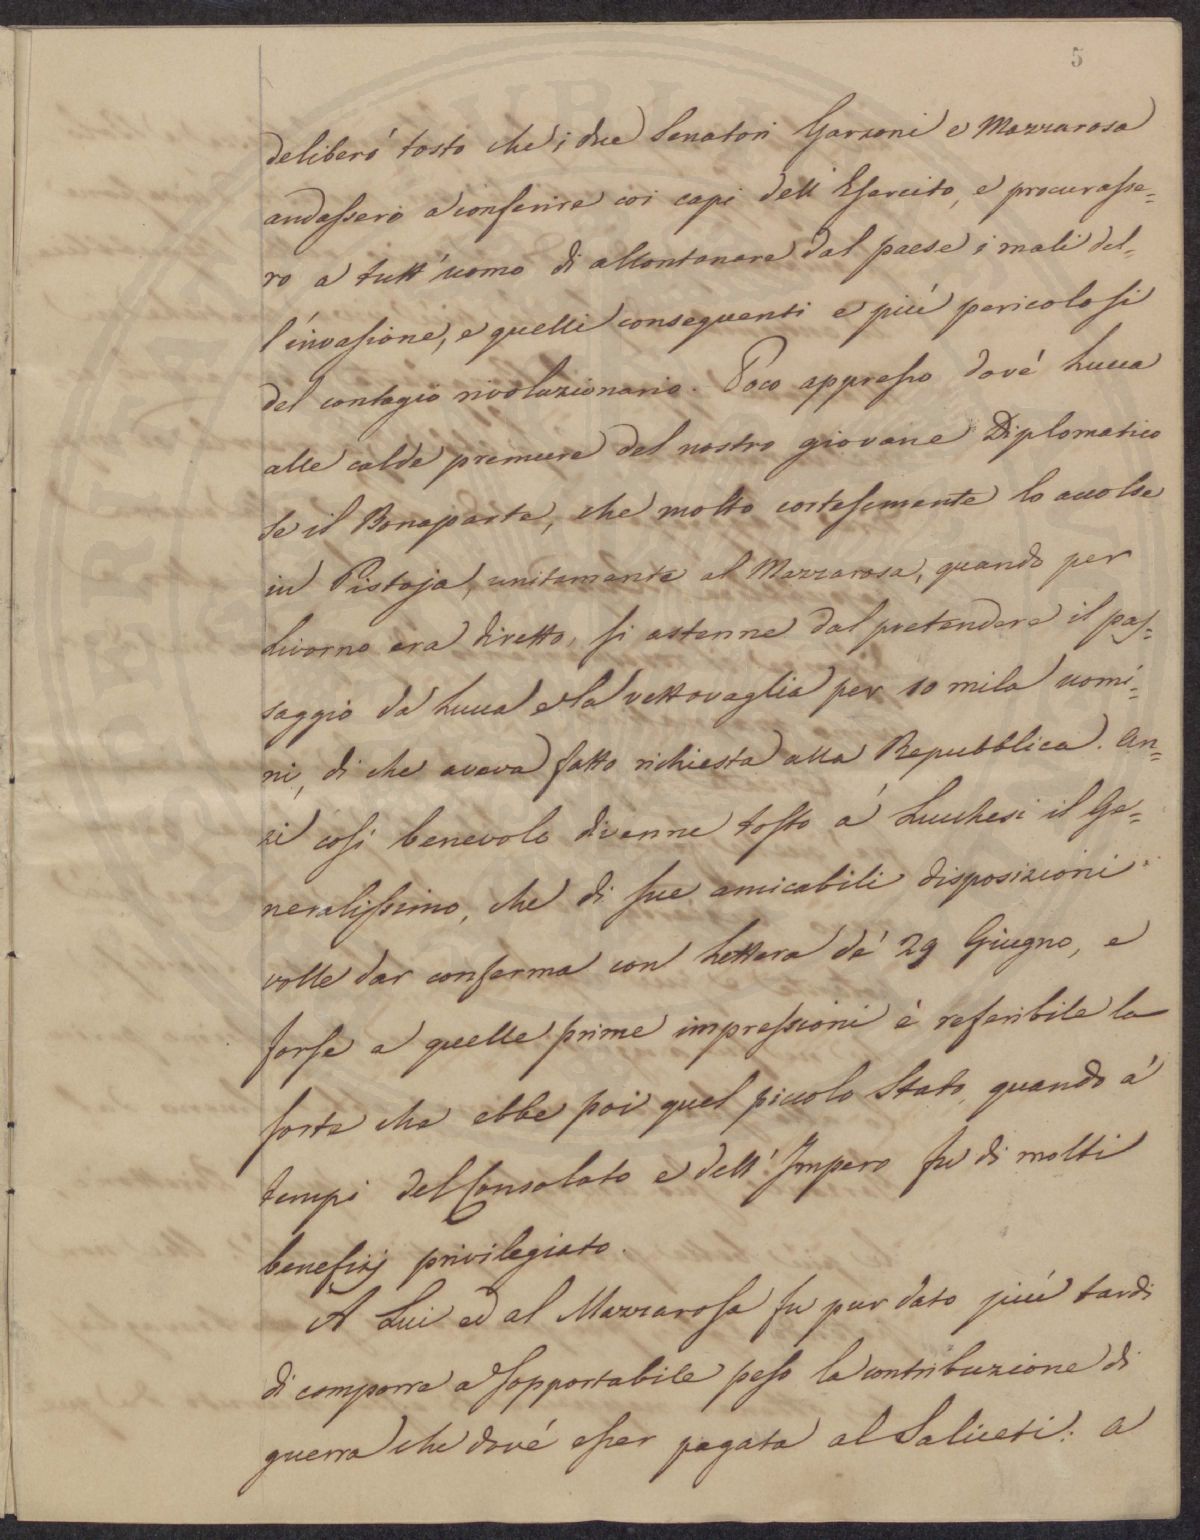 5
deliberò tosto che i due Senatori Garzoni e Mazzarosa
andassero a conferire coi capi dell'Esercito, e procurasse=
ro a tutt'uomo di allontanare dal paese i mali del=
l'invasione, e quelli conseguenti e più pericolosi
del contagio rivoluzionario. Poco appresso dovè Lucca
alle calde premure del nostro giovane Diplomatico
se il Bonaparte, che molto cortesemente lo accolse
in Pistoja, unitamente al Mazzarosa, quando per
Livorno era diretto, si astenne dal pretendere il pas=
saggio da Lucca e la vettovaglia per 10 mila uomi=
ni, di che aveva fatto richiesta alla Repubblica. An=
zi così benevolo divenne tosto a' Lucchesi il Ge=
neralissimo, che di sue amicabili disposizioni
volle dar conferma con Lettera de' 29 Giugno, e
forse a quelle prime impressioni è referibile la
sorte che ebbe poi quel piccolo Stato, quando a'
tempi del Consolato e dell'Impero fu di molti
benefizj privilegiato.
A Lui ed al Mazzarosa fu pur dato più tardi
di comporre a sopportabile peso la contribuzione di
guerra che dovè esser pagata al Saliceti: a